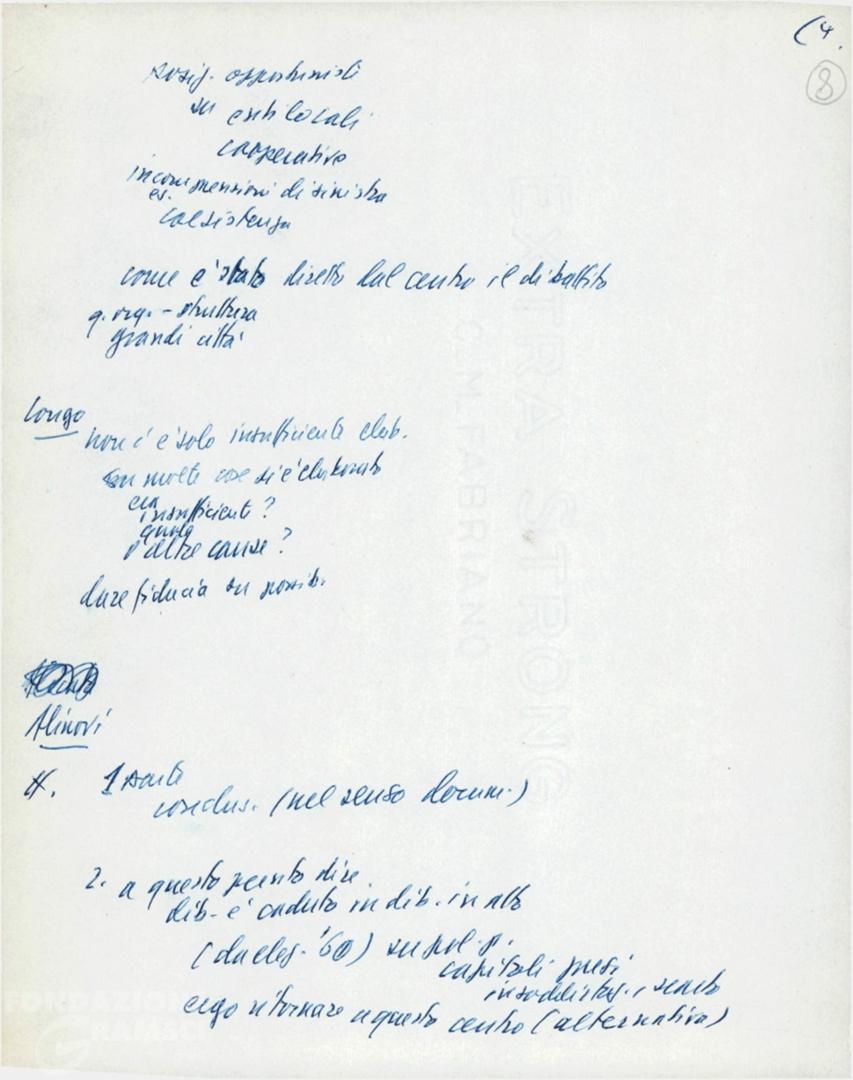 (4.
8
opportunisti
su enti locali
cooperative
incomprensioni di sinistra
es.
coesistenza
come è stato diretto dal centro il dibattito
q. org. - struttura
grandi città
Longo
non c'è solo insufficiente elab.
su molte cose si è elaborato
era
insufficiente?
quale
o altre cause?
dare fiducia su possib.
Alinovi
1 parte
conclus. (nel senso docum.)
2. a questo punto dire
dib. è caduto in dib. in atto
(da eleg. '60) su pol. p.
capitoli presi
ergo ritornare a questo centro (alternativa)
EXTRA STRONG
C.M. FABRIANO
FONDAZIONE
GRAMSCI